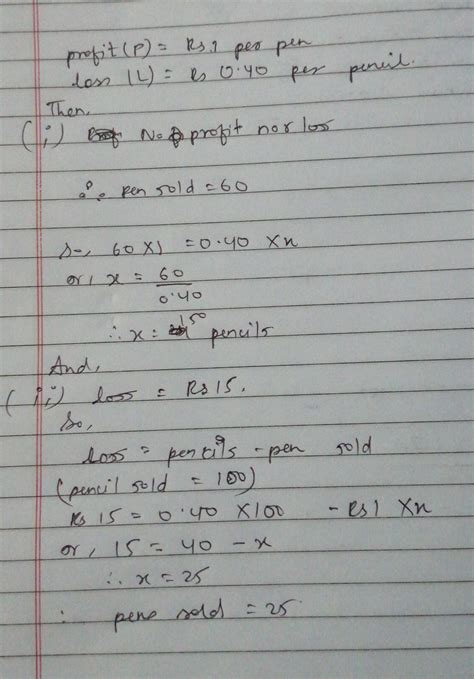 profit (P) = Rs 1 per pen
loss (L) = Rs 0.40 per pencil.
Then,
(i) No profit nor loss
∴ pen sold = 60
So, 60 x 1 = 0.40 x x
or, x = 60
0.40
∴ x = 150 pencils
And,
(ii) loss = Rs 15.
So,
loss = pencils - pen sold
(pencil sold = 100)
Rs 15 = 0.40 x 100 - Rs 1 x x
or, 15 = 40 - x
∴ x = 25
: pens sold = 25.